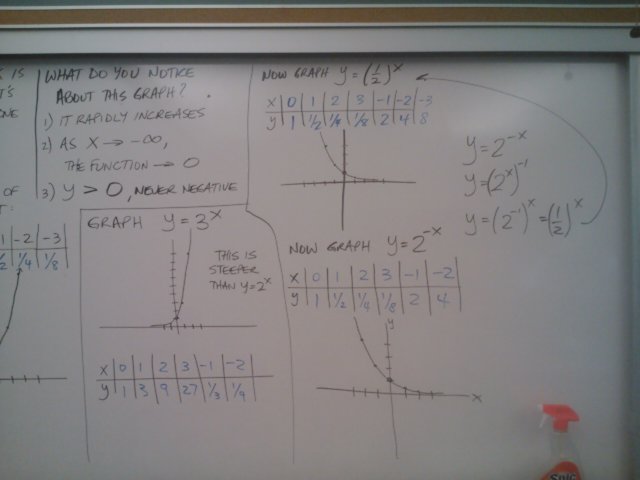 IS
'S
ONE
OF
1 | -2 | -3
1/2 | 1/4 | 1/8
WHAT DO YOU NOTICE
ABOUT THIS GRAPH?
1) IT RAPIDLY INCREASES
2) AS X → -∞,
THE FUNCTION → 0
3) y > 0, NEVER NEGATIVE
GRAPH y = 3^x
THIS IS
STEEPER
THAN y = 2^x
x | 0 | 1 | 2 | 3 | -1 | -2
y | 1 | 3 | 9 | 27 | 1/3 | 1/9
NOW GRAPH y = (1/2)^x
x | 0 | 1 | 2 | 3 | -1 | -2 | -3
y | 1 | 1/2 | 1/4 | 1/8 | 2 | 4 | 8
y = 2^-x
y = (2^x)^-1
y = (2^-1)^x = (1/2)^x
NOW GRAPH y = 2^-x
x | 0 | 1 | 2 | 3 | -1 | -2
y | 1 | 1/2 | 1/4 | 1/8 | 2 | 4
y
x